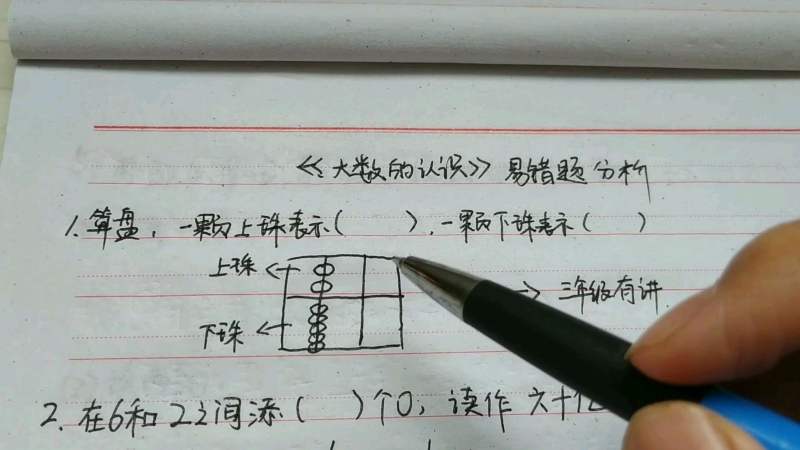 《大数的认识》易错题分析
1. 算盘，一颗上珠表示（ ），一颗下珠表示（ ）
上珠
→ 三年级有讲.
下珠
2. 在6和2之间添（ ）个0，读作六十亿